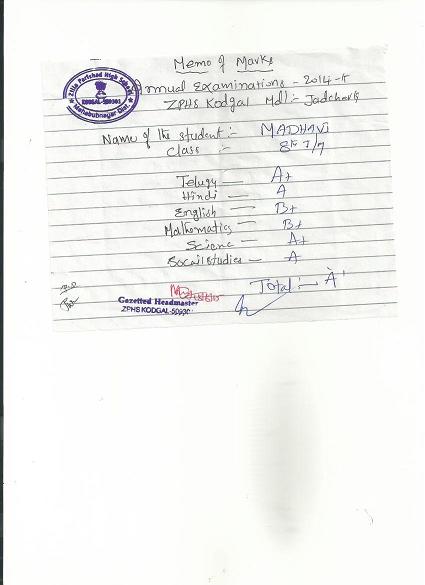 Memo of Marks
Zilla Parishad High School
KODGAL-509301
Mahabubnagar Dist
Annual Examinations - 2014-15
ZPHS Kodgal Mdl:- Jadcherla
Name of the student :- MADHAVI
Class :- 8th
Telugu — A+
Hindi — A
English — B+
Mathematics — B+
Science — A+
Socail studies — A
Total :- A
Gazetted Headmaster
ZPHS KODGAL-50930